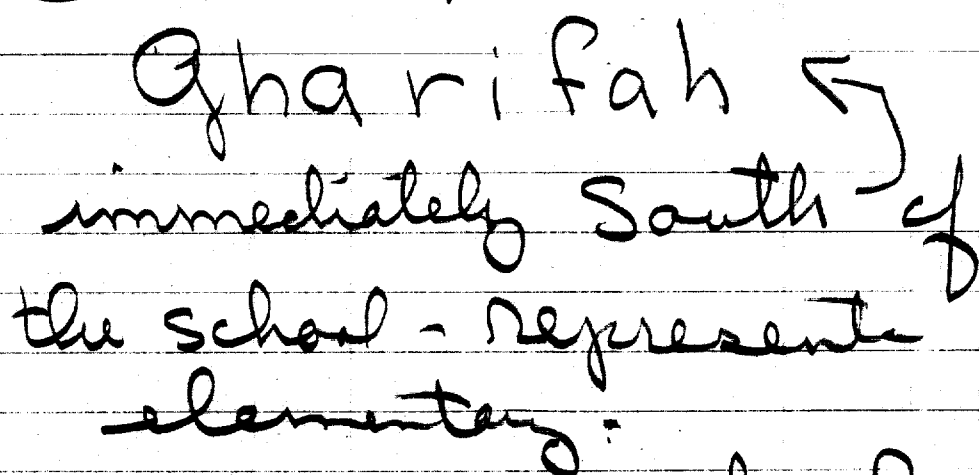 Gharifah
immediately South of
the school - represents
elementary.